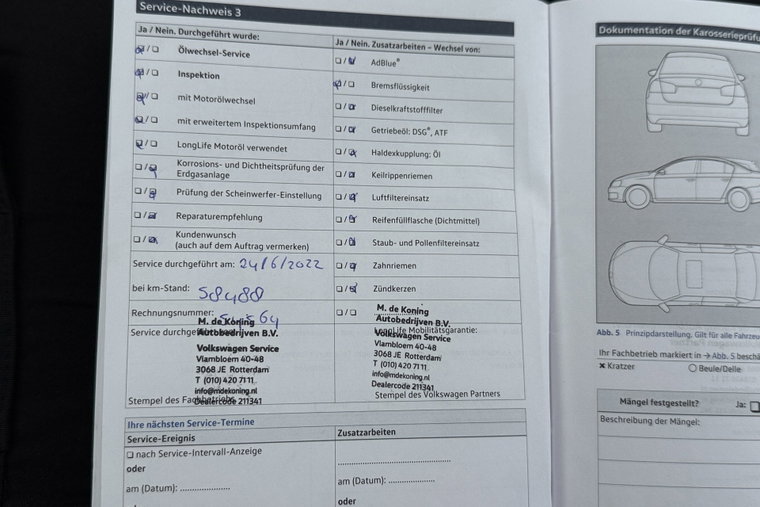 Service-Nachweis 3
Ja / Nein. Durchgeführt wurde:
❏ / ❏ Ölwechsel-Service
❏ / ❏ Inspektion
❏ / ❏ mit Motorölwechsel
❏ / ❏ mit erweitertem Inspektionsumfang
❏ / ❏ LongLife Motoröl verwendet
❏ / ❏ Korrosions- und Dichtheitsprüfung der
Erdgasanlage
❏ / ❏ Prüfung der Scheinwerfer-Einstellung
❏ / ❏ Reparaturempfehlung
❏ / ❏ Kundenwunsch
(auch auf dem Auftrag vermerken)
Service durchgeführt am: 24/6/2022
bei km-Stand: 58488
Rechnungsnummer:
M. de Koning
Autobedrijven B.V.
Service durchgeführt
Volkswagen Service
Vlambloem 40-48
3068 JE Rotterdam
T (010) 420 71 11
info@mdekoning.nl
Dealercode 211341
Stempel des Fachbetriebs
Ja / Nein. Zusatzarbeiten – Wechsel von:
❏ / ❏ AdBlue®
❏ / ❏ Bremsflüssigkeit
❏ / ❏ Dieselkraftstofffilter
❏ / ❏ Getriebeöl: DSG®, ATF
❏ / ❏ Haldexkupplung: Öl
❏ / ❏ Keilrippenriemen
❏ / ❏ Luftfiltereinsatz
❏ / ❏ Reifenfüllflasche (Dichtmittel)
❏ / ❏ Staub- und Pollenfiltereinsatz
❏ / ❏ Zahnriemen
❏ / ❏ Zündkerzen
❏ / ❏
M. de Koning
Autobedrijven B.V.
LongLife Mobilitätsgarantie:
Volkswagen Service
Vlambloem 40-48
3068 JE Rotterdam
T (010) 420 71 11
info@mdekoning.nl
Dealercode 211341
Stempel des Volkswagen Partners
Ihre nächsten Service-Termine
Service-Ereignis
❏ nach Service-Intervall-Anzeige
oder
am (Datum): ....................
Zusatzarbeiten
am (Datum): ..................
oder
Dokumentation der Karosserieprüfu
Abb. 5 Prinzipdarstellung. Gilt für alle Fahrzeu
Ihr Fachbetrieb markiert in → Abb. 5 beschä
✕ Kratzer
○ Beule/Delle
Mängel festgestellt? Ja: ❏
Beschreibung der Mängel: